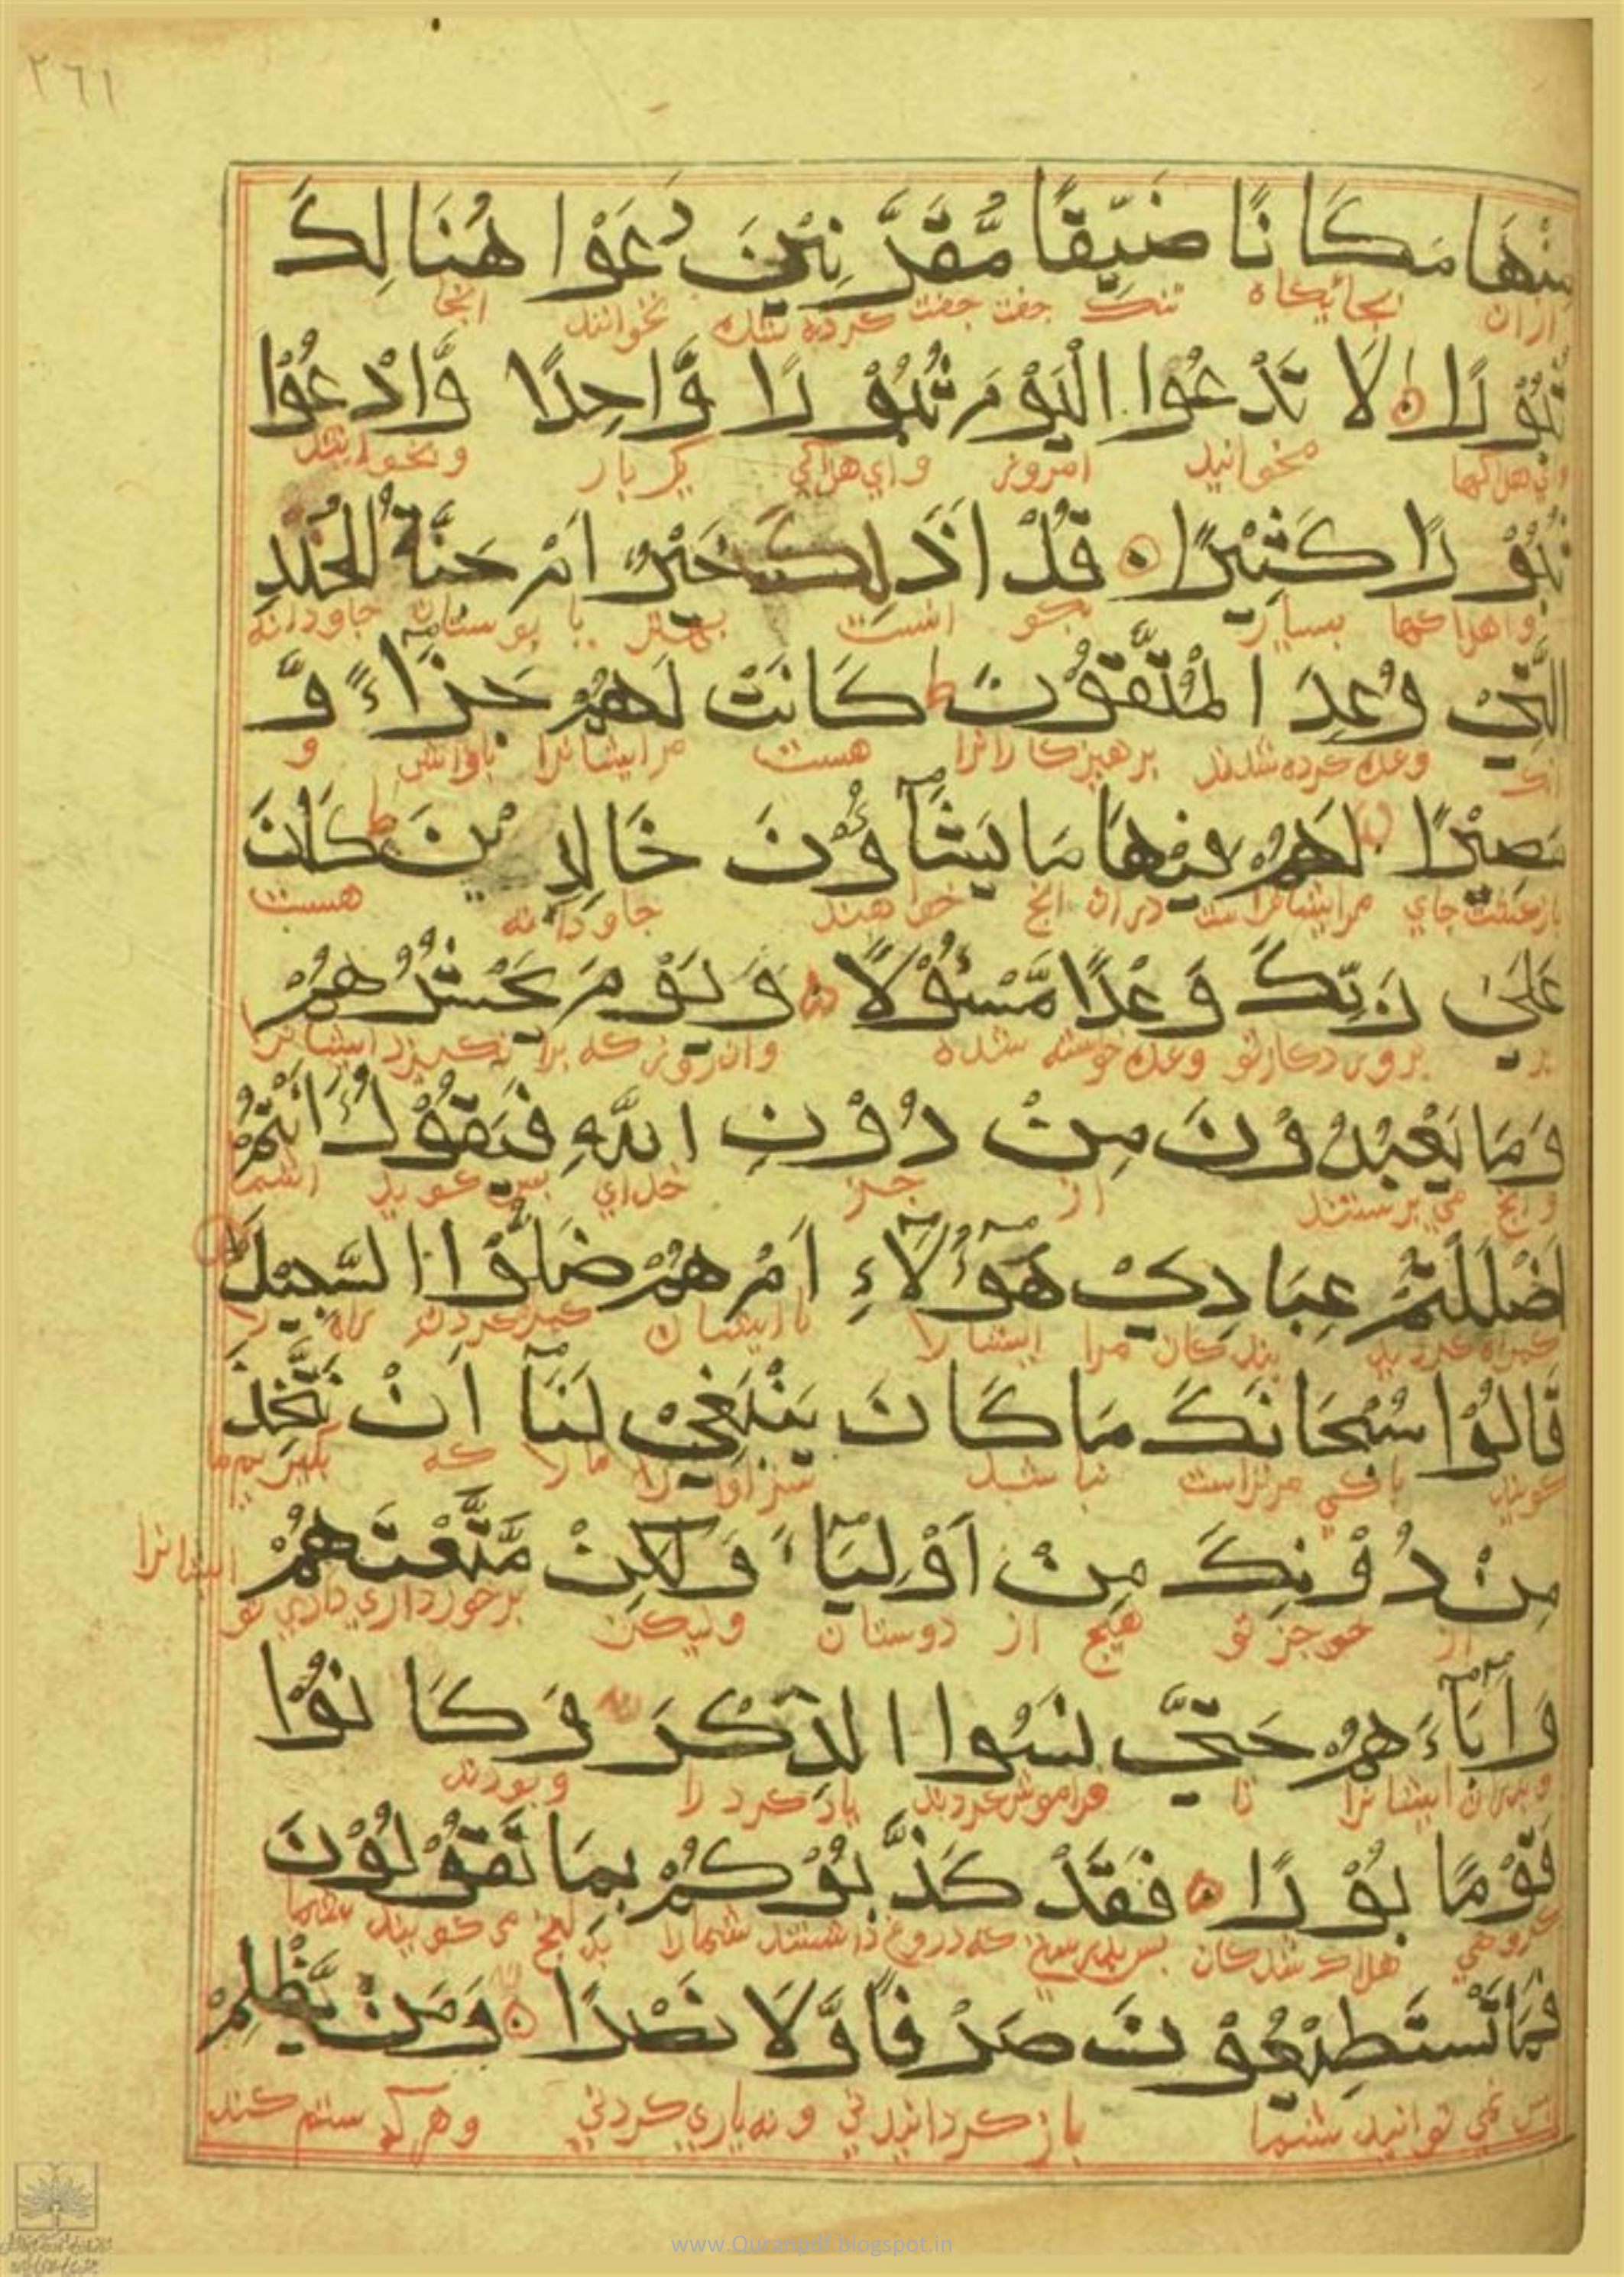 ٢٦١
مِنْهَا مَكَانًا ضَيِّقًا مُّقَرَّنِيْنَ دَعَوْا هُنَالِكَ
ازان بجائيكاه تنك جفت جفت كرده شده بخوانند انجا
ثُبُوْرًا لَا تَدْعُوا الْيَوْمَ ثُبُوْرًا وَّاحِدًا وَّادْعُوْا
مخوانيد امروز واي هلاكي يكبار وبخوانيد
ثُبُوْرًا كَثِيْرًا قُلْ اَذٰلِكَ خَيْرٌ اَمْ جَنَّةُ الْخُلْدِ
واهلاكها بسيار بكو است بهتر يا بوستان جاودانه
الَّتِيْ وُعِدَ الْمُتَّقُوْنَ ط كَانَتْ لَهُمْ جَزَآءً وَّ
وعده كرده شدند برهيزكارانرا هست مرايشانرا باداش و
مَصِيْرًا لَهُمْ فِيْهَا مَا يَشَآؤُنَ خَالِدِيْنَ ط كَانَ
بازكشت جاي مرايشانراست دران انج خواهند جاودانه هست
عَلٰى رَبِّكَ وَعْدًا مَّسْئُوْلًا وَيَوْمَ يَحْشُرُهُمْ
بر بروردكارتو وعده خواسته شده وان روز كه برانكيزد ايشانرا
وَمَا يَعْبُدُوْنَ مِنْ دُوْنِ اللّٰهِ فَيَقُوْلُ ءَاَنْتُمْ
وانج مي برستند از جز خداي بس كويد اشما
اَضْلَلْتُمْ عِبَادِيْ هٰٓؤُلَآءِ اَمْ هُمْ ضَلُّوْا السَّبِيْلَ
كمراه كرديد بندكان مرا ايشانرا يا ايشان كمراه كردند راه را
قَالُوْا سُبْحَانَكَ مَا كَانَ يَنْبَغِيْ لَنَآ اَنْ نَتَّخِذَ
كويند باكي مرتراست نباشد سزاوار مارا كه بكيريم ما
مِنْ دُوْنِكَ مِنْ اَوْلِيَآءَ وَلٰكِنْ مَتَّعْتَهُمْ
از جز تو هيج از دوستان وليكن برخورداري دادي تو ايشانرا
وَاٰبَآءَهُمْ حَتّٰى نَسُوا الذِّكْرَ وَكَانُوْا
وبدران ايشانرا تا فراموش كردند ياد كرد را وبودند
قَوْمًا بُوْرًا فَقَدْ كَذَّبُوْكُمْ بِمَا تَقُوْلُوْنَ
كروهي هلاك شدكان بس بدرستي كه دروغ داشتند شمارا بدانج مي كوييد شما
فَمَا تَسْتَطِيْعُوْنَ صَرْفًا وَّلَا نَصْرًا وَمَنْ يَّظْلِمْ
بس نمي توانيد شما باز كردانيدني ونه ياري كردني وهركه ستم كند
www.Quranpdf.blogspot.in